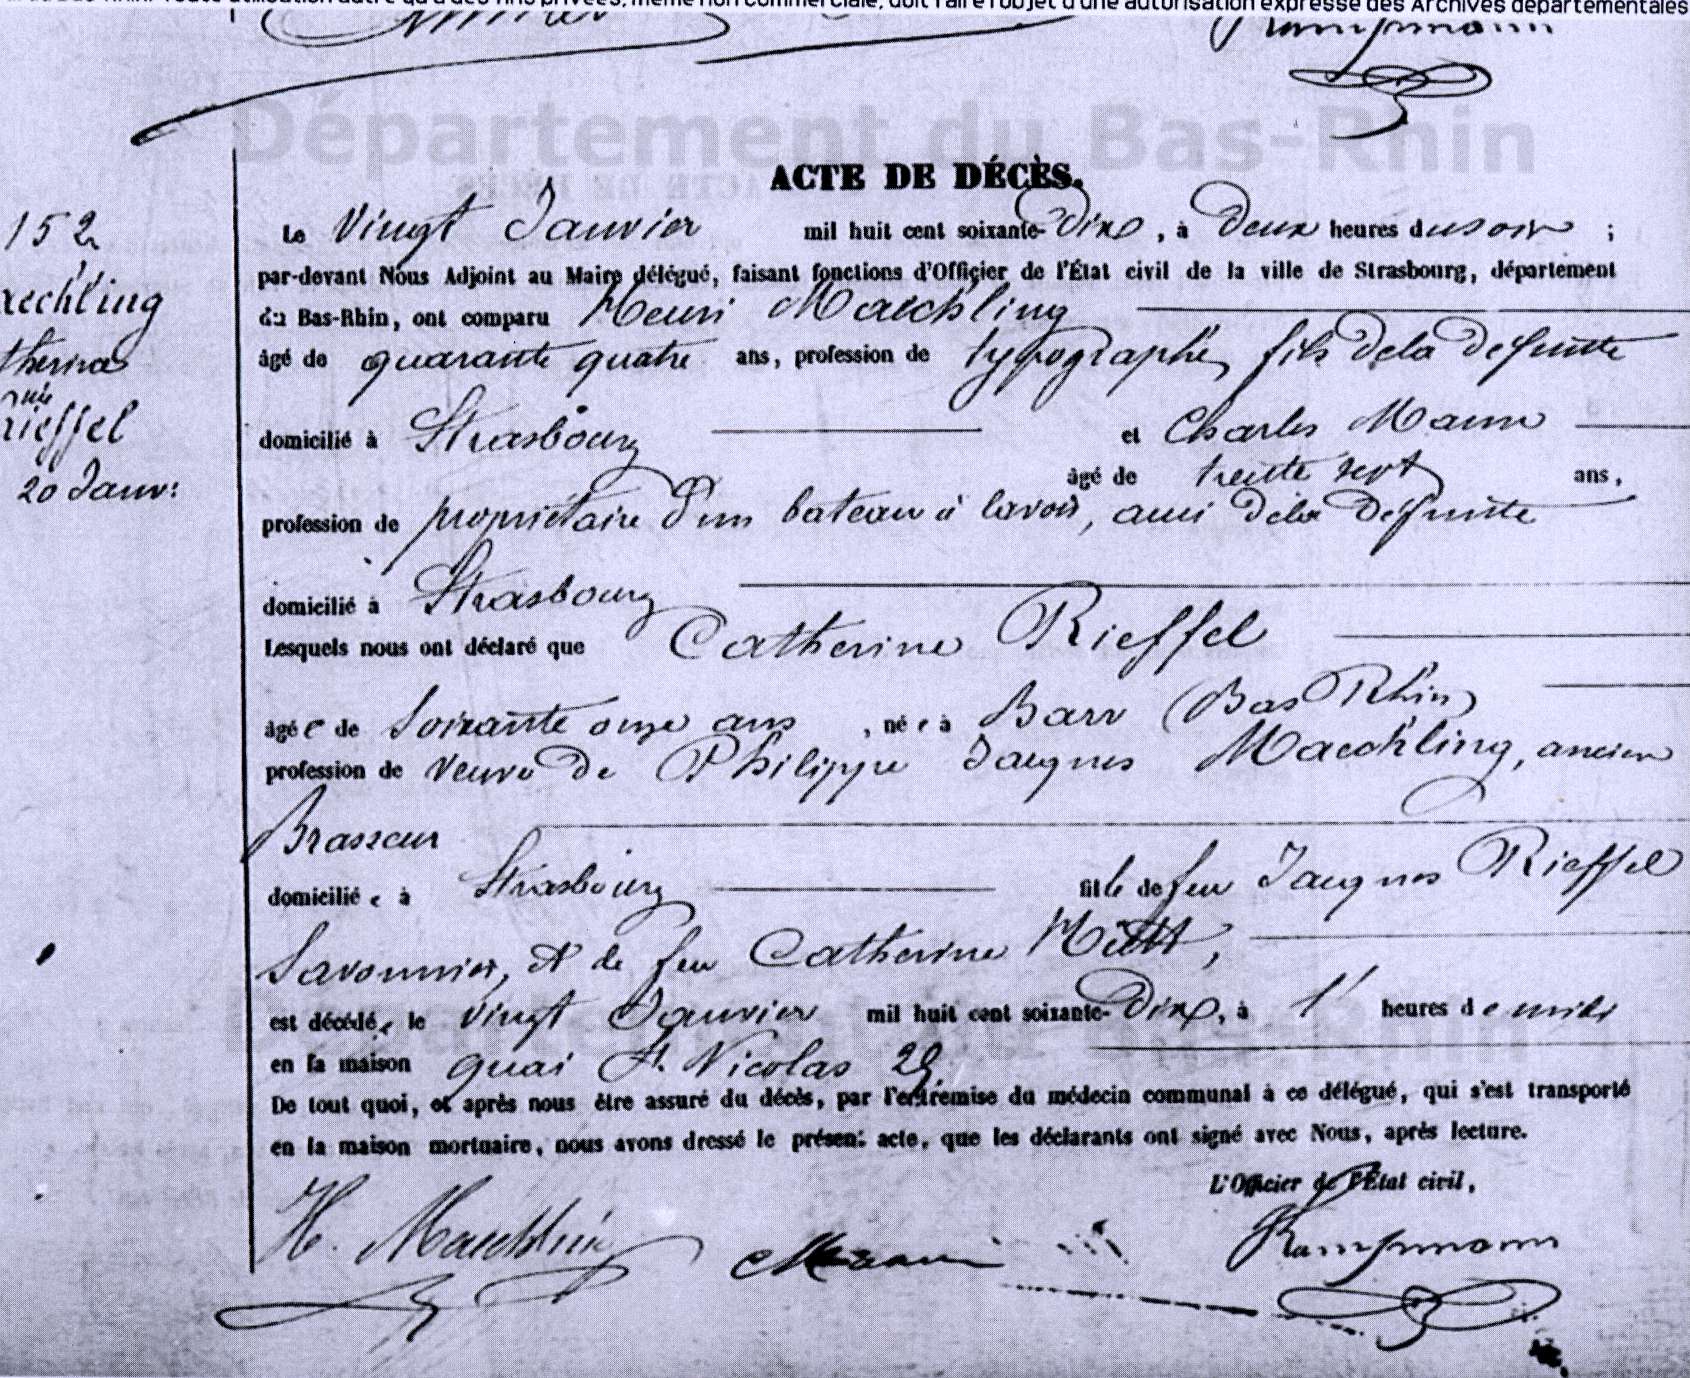 toute utilisation autre qu'à des fins privées, même non commerciale, doit faire l'objet d'une autorisation expresse des Archives départementales
Département du Bas-Rhin
ACTE DE DÉCÈS.
152
Le Vingt Janvier mil huit cent soixante-Dix, à Deux heures du soir ;
par-devant Nous Adjoint au Maire délégué, faisant fonctions d'Officier de l'État civil de la ville de Strasbourg, département
aechling
du Bas-Rhin, ont comparu Henri Maechling
therine
âgé de quarante quatre ans, profession de typographe, fils de la défunte
née
rieffel
domicilié à Strasbourg et Charles Mann
20 Janv:
âgé de trente sept ans,
profession de propriétaire d'un bateau à lavoir, ami de la Défunte
domicilié à Strasbourg
Lesquels nous ont déclaré que Catherine Rieffel
âgée de soixante onze ans, née à Barr (Bas Rhin)
profession de veuve de Philippe Jacques Maechling, ancien
Brasseur
domiciliée à Strasbourg fille de feu Jacques Rieffel
Savonnier, et de feu Catherine
est décédée le vingt Janvier mil huit cent soixante-Dix, à 1 heures de
en la maison quai St. Nicolas 29
Département du Bas-Rhin
De tout quoi, et après nous être assuré du décès, par l'entremise du médecin communal à ce délégué, qui s'est transporté
en la maison mortuaire, nous avons dressé le présent acte, que les déclarants ont signé avec Nous, après lecture.
L'Officier de l'État civil,
H. Maechling Mann Kampmann